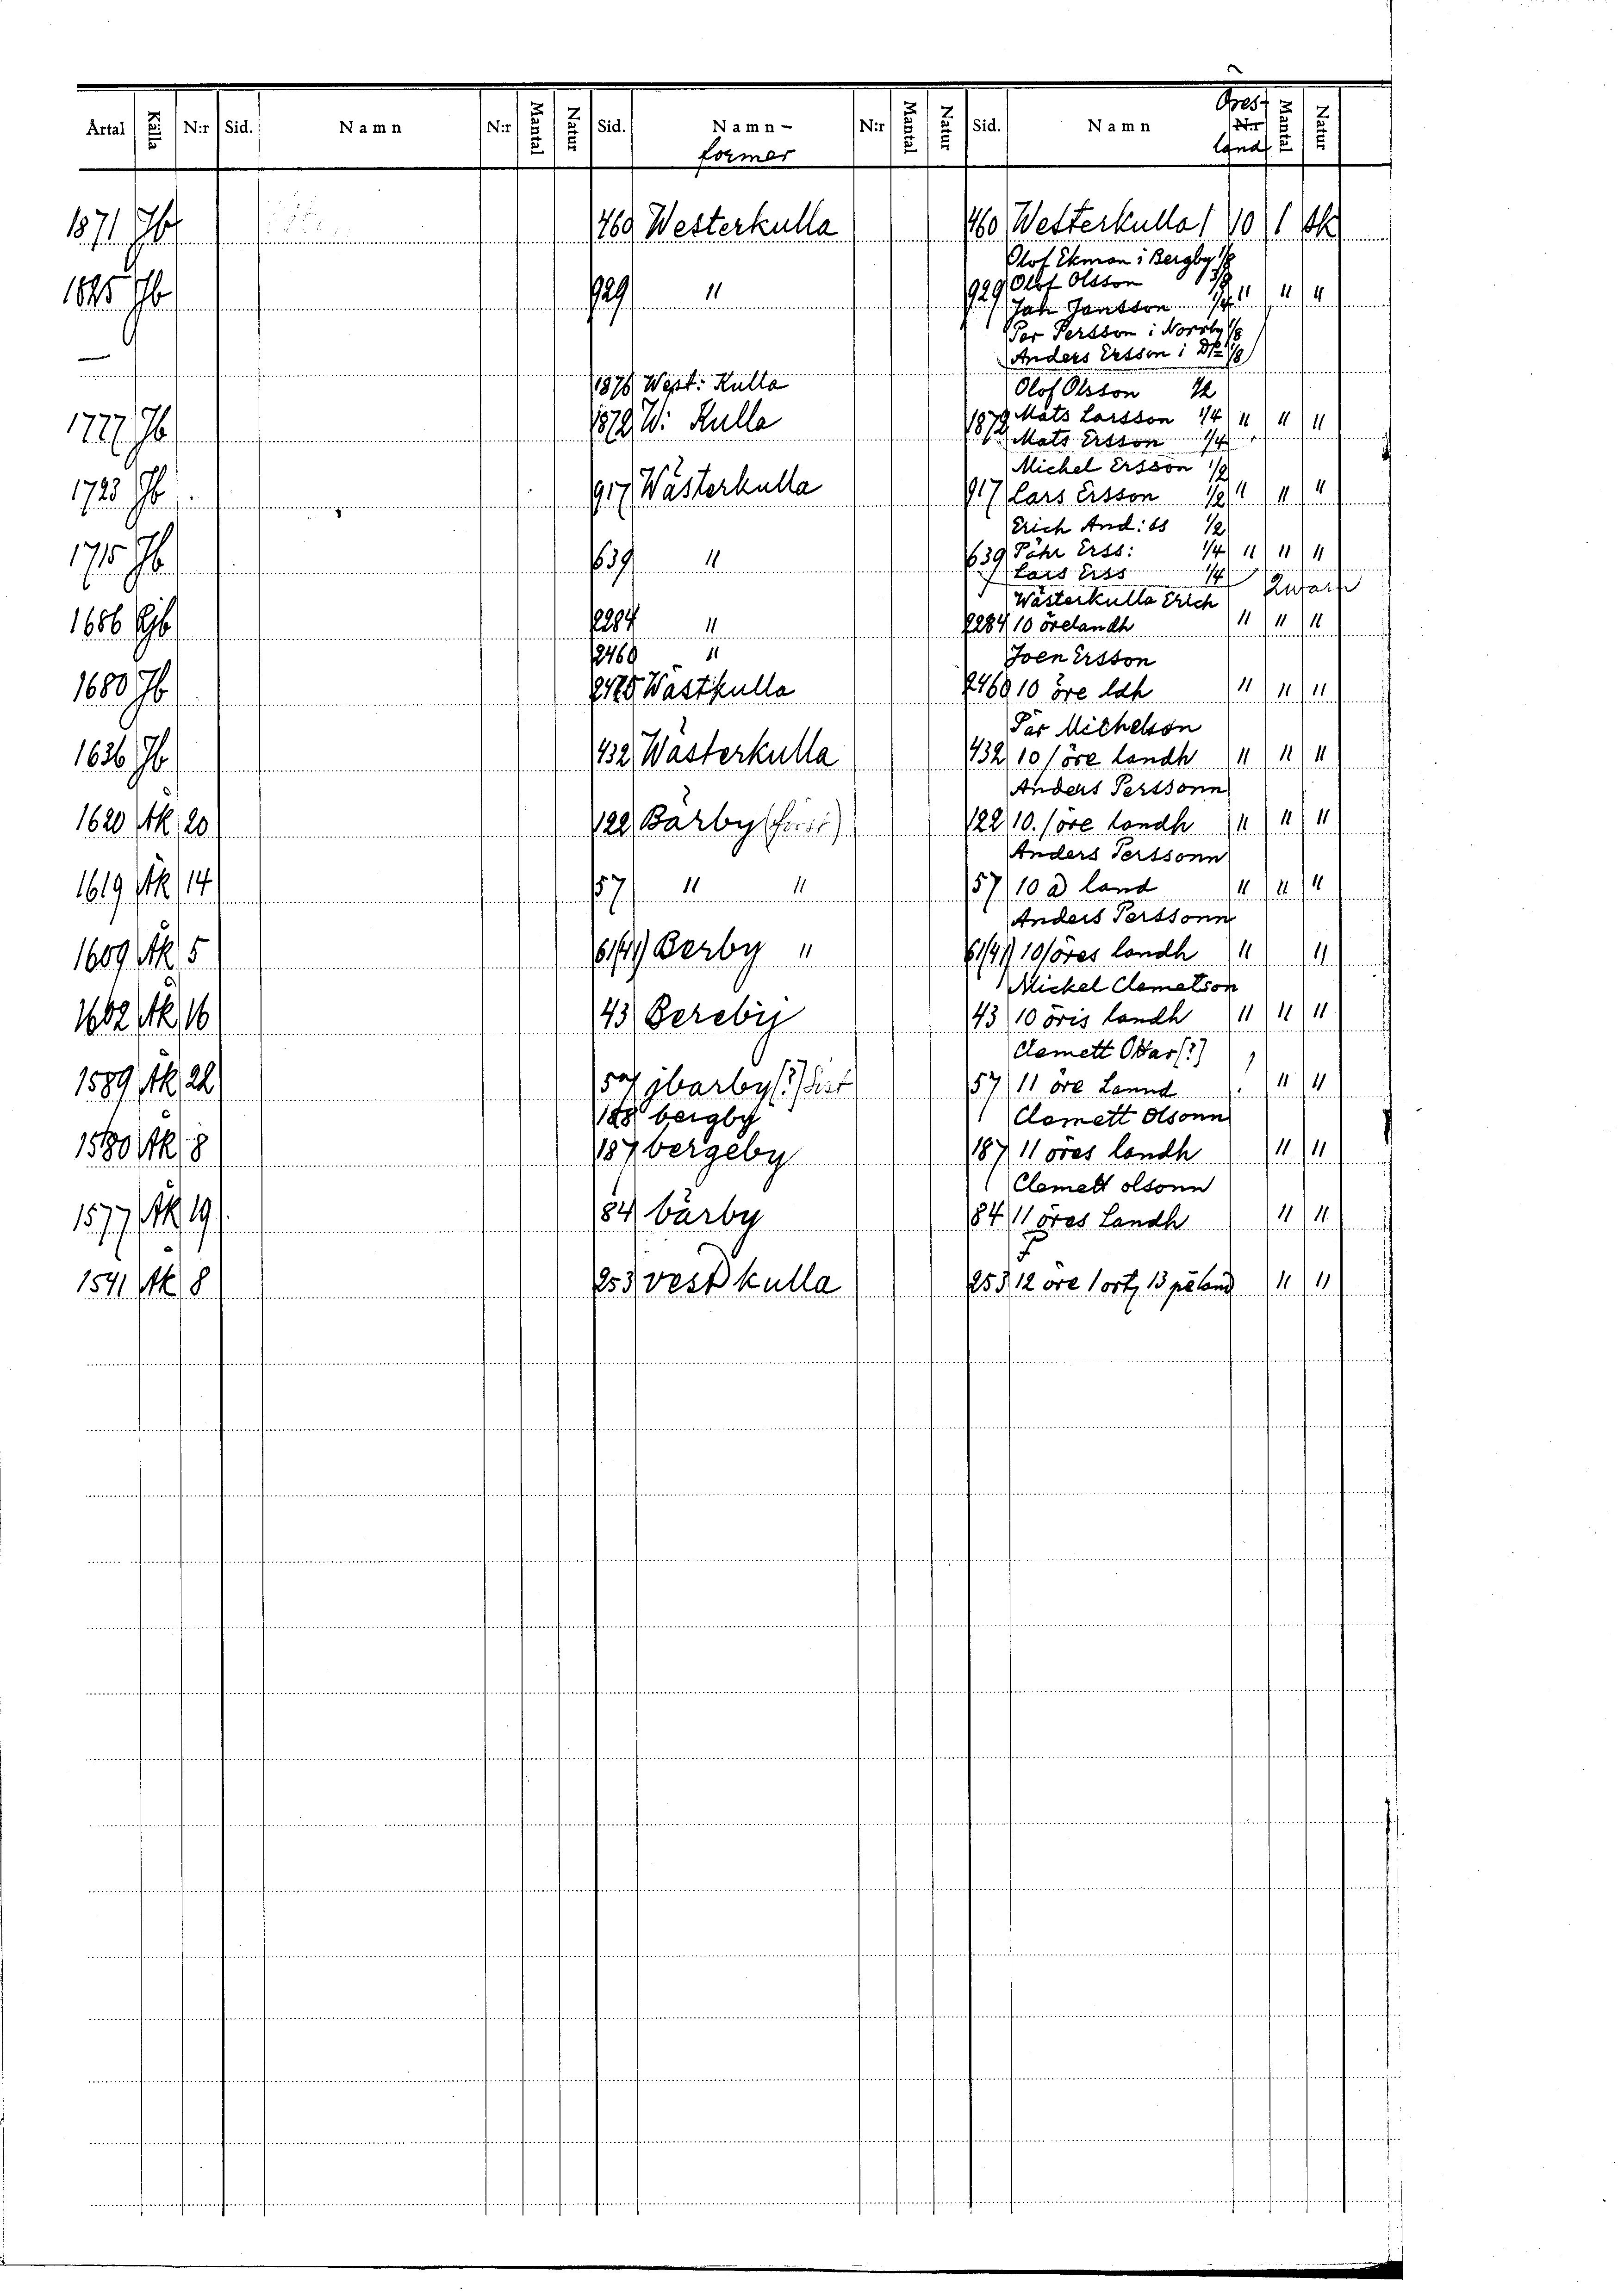 Årtal Källa N:r Sid. Namn N:r Mantal Natur Sid. Namn- former N:r Mantal Natur Sid. Namn Öres- N:r land Mantal Natur
1871 Jb 460 Westerkulla 460 Westerkulla 1 10 1 Sk
Olof Ekman i Bergby 1/8
1825 Jb 929 " 929 Olof Olsson 3/8 " " "
Joh Jansson 1/4
Per Persson i Norrby 1/8
Anders Ersson i Do 1/8
1876 West: Kulla Olof Olsson 1/2
1777 Jb 1879 W: Kulla 1879 Mats Larsson 1/4 " " "
Mats Ersson 1/4
Michel Ersson 1/2
1723 Jb 917 Wästerkulla 917 Lars Ersson 1/2 " " "
Erich And:ss 1/2
1715 Jb 639 " 639 Pähr Erss: 1/4 " " "
Lars Erss 1/4
Wästerkulla Erich Qwarn
1686 Jb 2284 " 2284 10 örelandh " " "
2460 " Joen Ersson
1680 Jb 2475 Wästkulla 2460 10 öre ldh " " "
Pär Michelson
1636 Jb 432 Wästerkulla 432 10 / öre landh " " "
Anders Perssonn
1620 Äk 20 122 Bärby (först) 122 10. / öre landh " " "
Anders Perssonn
1619 Äk 14 57 " " 57 10 a land " " "
Anders Perssonn
1609 Äk 5 61(41) Berby " 61(41) 10/öres landh " "
Mickel Clematson
1602 Äk 16 43 Berebij 43 10 öris landh " " "
Clemett Ottar[?]
1589 Äk 22 57 jbarby[?] Sist 57 11 öre Lannd " "
188 bergby Clemett Olsonn
1580 Äk 8 187 bergeby 187 11 öres landh " "
Clemett olsonn
1577 Äk 19 84 bärby 84 11 öres Landh " "
1541 Äk 8 253 vest kulla 253 12 öre 1 ortz 13 pe land " "